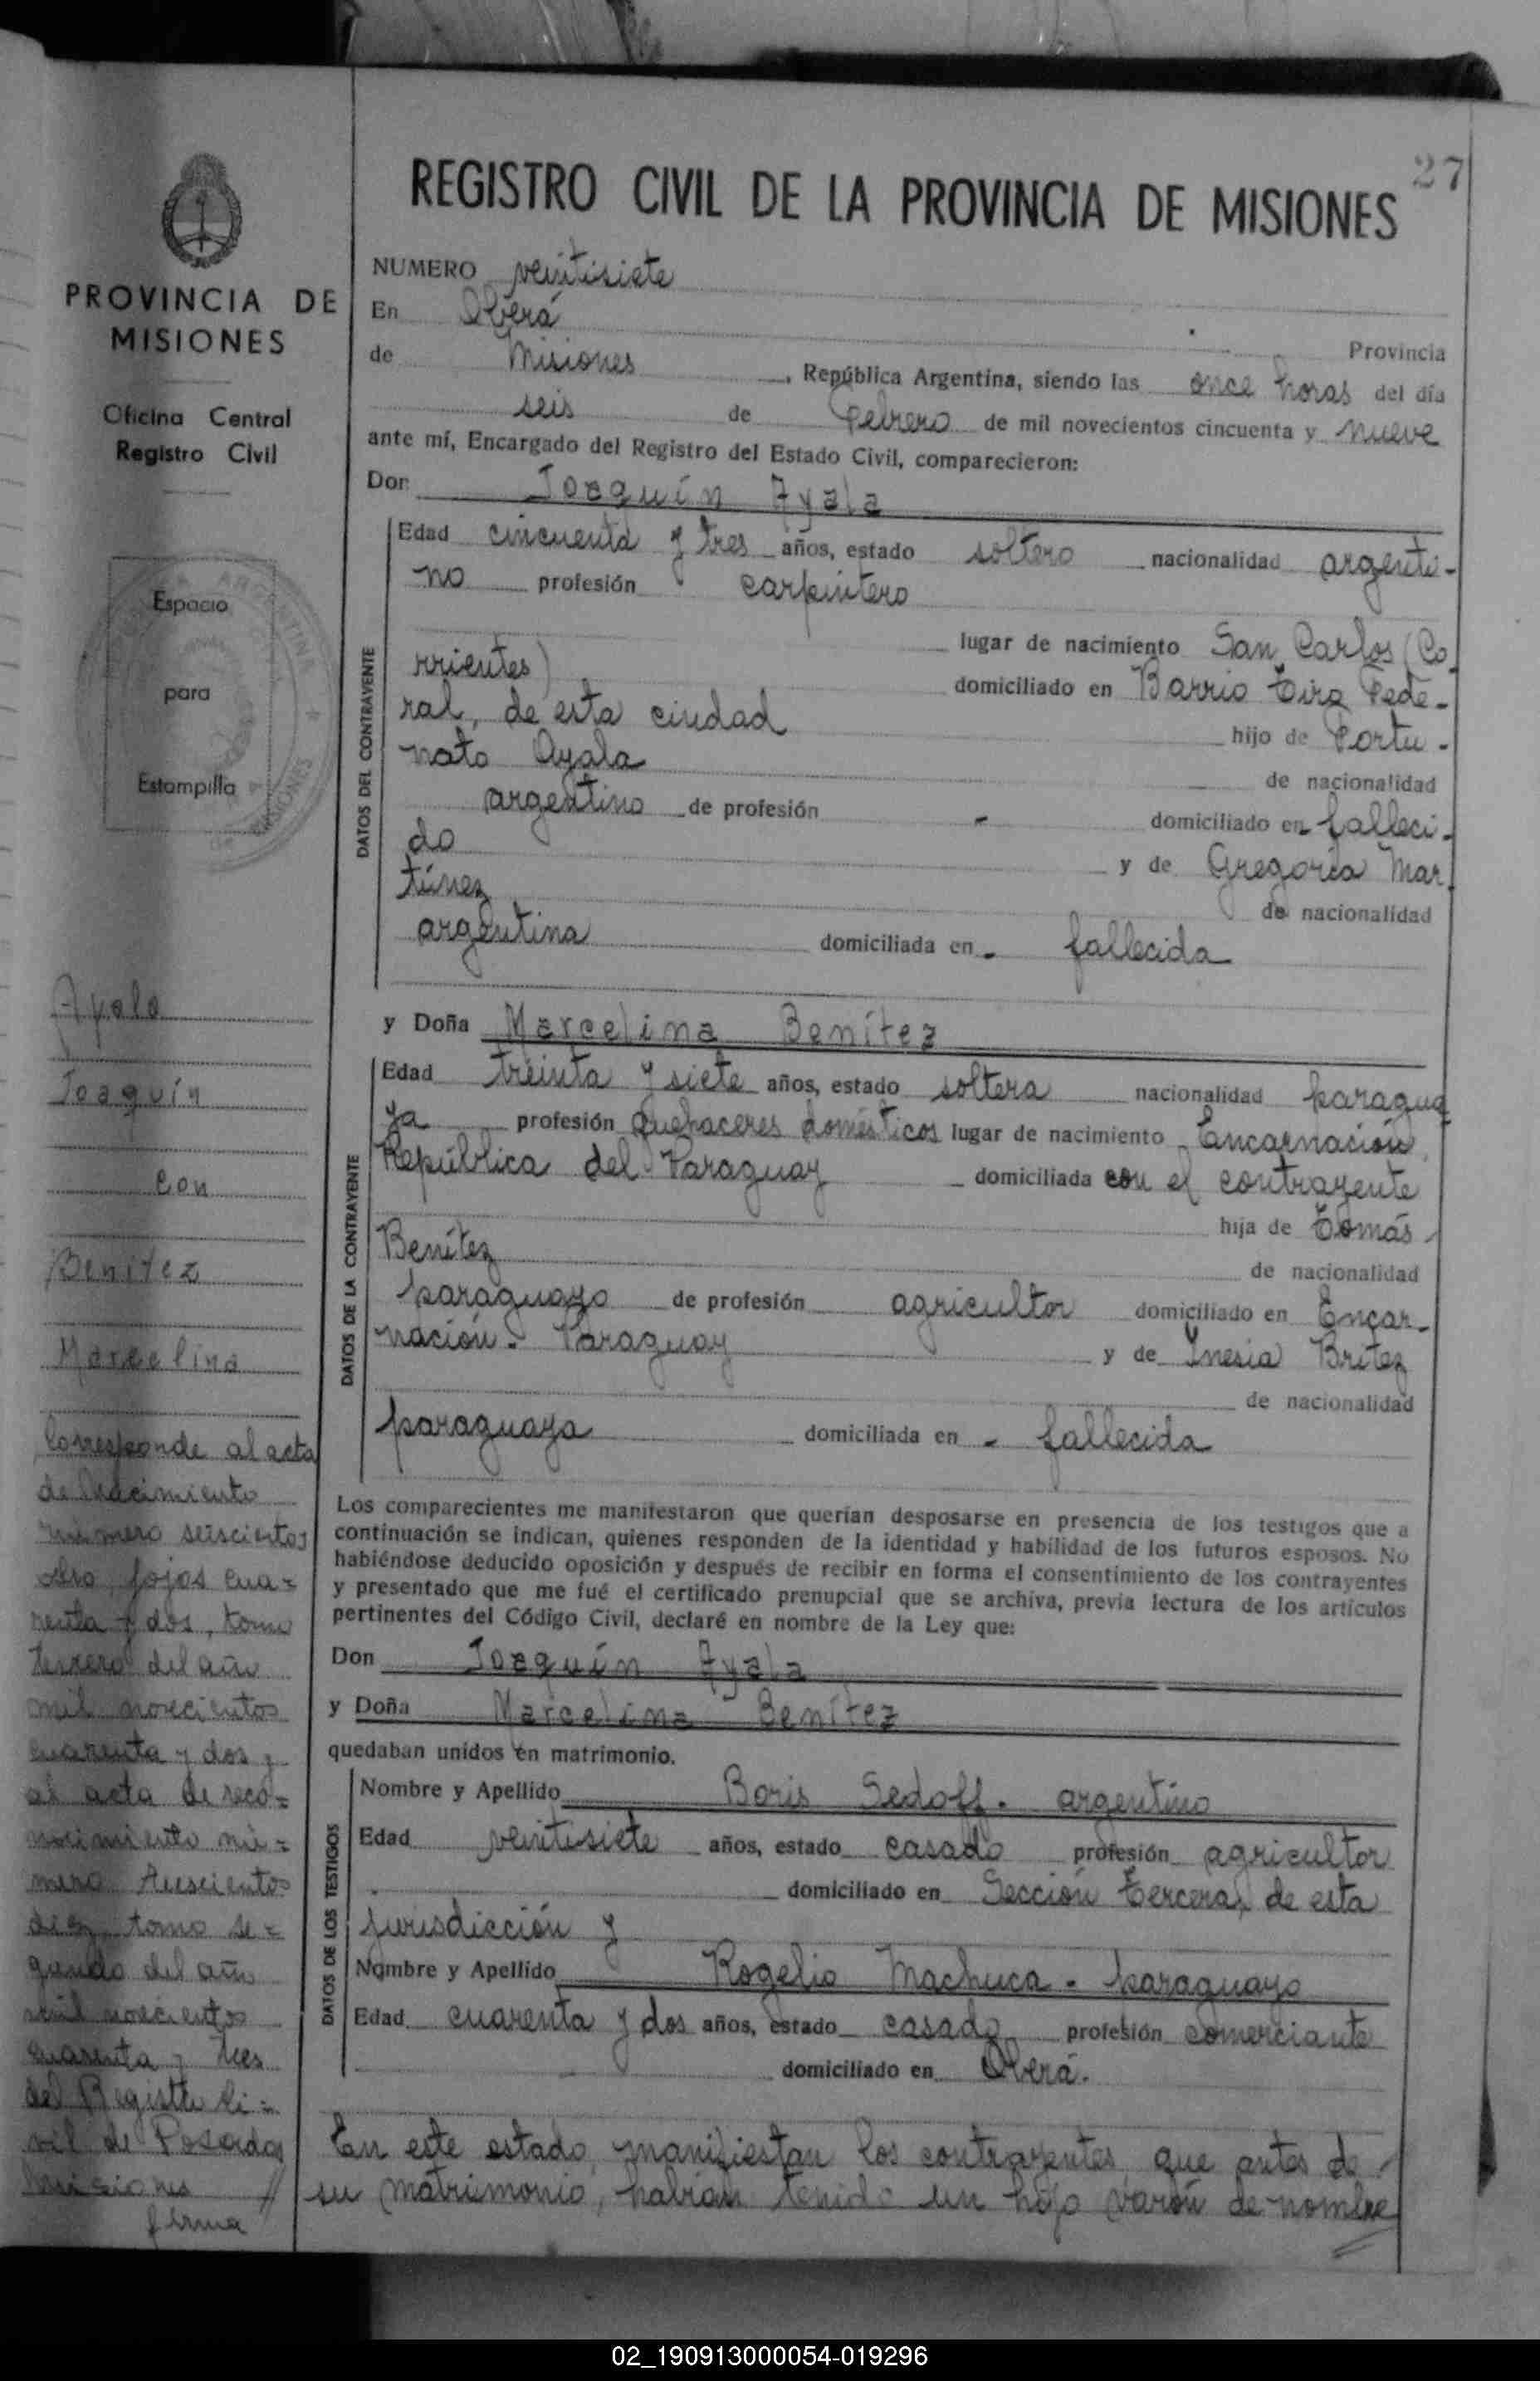 27
REGISTRO CIVIL DE LA PROVINCIA DE MISIONES
PROVINCIA DE
MISIONES
Oficina Central
Registro Civil
Espacio
para
Estampilla
Ayala
Joaquín
con
Benítez
Marcelina
Corresponde al acta
de Nacimiento
número seiscientos
ocho, fojas cua=
renta y dos, tomo
tercero del año
mil novecientos
cuarenta y dos y
al acta de reco=
nocimiento nú=
mero
diez, tomo se=
gundo del año
mil novecientos
cuarenta y tres
del Registro Ci=
vil de Posadas
Misiones //
firma
NUMERO veintisiete
En Oberá Provincia
de Misiones, República Argentina, siendo las once horas del día
seis de Febrero de mil novecientos cincuenta y nueve
ante mí, Encargado del Registro del Estado Civil, comparecieron:
Don Joaquín Ayala
DATOS DEL CONTRAYENTE
Edad cincuenta y tres años, estado soltero nacionalidad argenti-
no profesión carpintero
lugar de nacimiento San Carlos (Co
rrientes) domiciliado en Barrio Tiro Fede-
ral, de esta ciudad hijo de Fortu-
nato Ayala de nacionalidad
argentino de profesión - domiciliado en falleci-
do y de Gregoria Mar
tínez de nacionalidad
argentina domiciliada en - fallecida
y Doña Marcelina Benítez
DATOS DE LA CONTRAYENTE
Edad treinta y siete años, estado soltera nacionalidad paragua
ya profesión quehaceres domésticos lugar de nacimiento Encarnación
República del Paraguay domiciliada con el contrayente
hija de Tomás
Benítez de nacionalidad
paraguayo de profesión agricultor domiciliado en Encar-
nación - Paraguay y de Inesia Britez
de nacionalidad
paraguaya domiciliada en - fallecida
Los comparecientes me manifestaron que querían desposarse en presencia de los testigos que a
continuación se indican, quienes responden de la identidad y habilidad de los futuros esposos. No
habiéndose deducido oposición y después de recibir en forma el consentimiento de los contrayentes
y presentado que me fué el certificado prenupcial que se archiva, previa lectura de los artículos
pertinentes del Código Civil, declaré en nombre de la Ley que:
Don Joaquín Ayala
y Doña Marcelina Benítez
quedaban unidos en matrimonio.
DATOS DE LOS TESTIGOS
Nombre y Apellido Boris Sedoff - argentino
Edad veintisiete años, estado casado profesión agricultor
domiciliado en Sección Tercera, de esta
jurisdicción y
Nombre y Apellido Rogelio Machuca - paraguayo
Edad cuarenta y dos años, estado casado profesión comerciante
domiciliado en Oberá.
En este estado, manifiestan los contrayentes, que antes de
su matrimonio, habían tenido un hijo varón de nombre
02_190913000054-019296